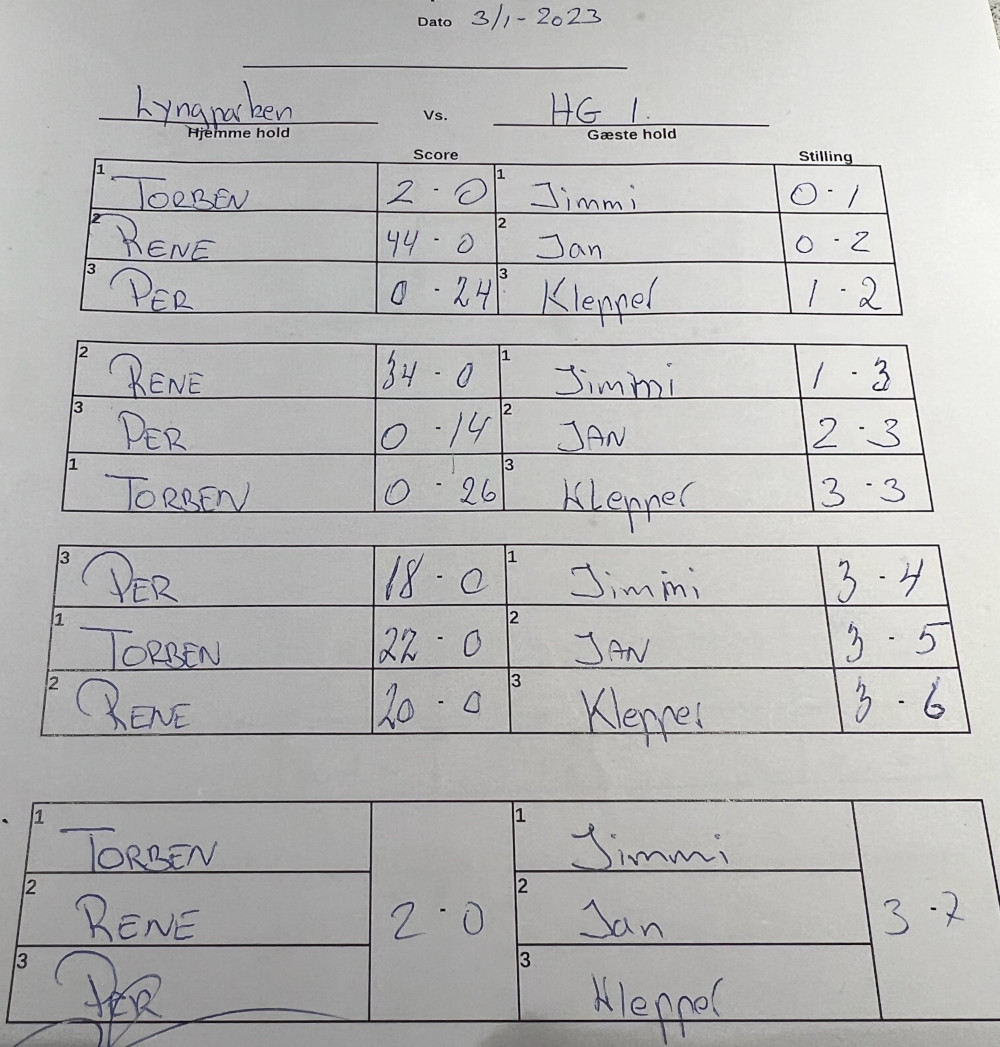 Dato 3/1-2023
Lyngparken Vs. HG 1.
Hjemme hold Gæste hold
Score Stilling
1 TORBEN 2 - 0 1 Jimmi 0 - 1
2 RENE 44 - 0 2 Jan 0 - 2
3 PER 0 - 24 3 Klepper 1 - 2
2 RENE 34 - 0 1 Jimmi 1 - 3
3 PER 0 - 14 2 JAN 2 - 3
1 TORBEN 0 - 26 3 Klepper 3 - 3
3 PER 18 - 0 1 Jimmi 3 - 4
1 TORBEN 22 - 0 2 JAN 3 - 5
2 RENE 20 - 0 3 Klepper 3 - 6
1 TORBEN 1 Jimmi
2 RENE 2 - 0 2 Jan 3 - 7
3 PER 3 Klepper